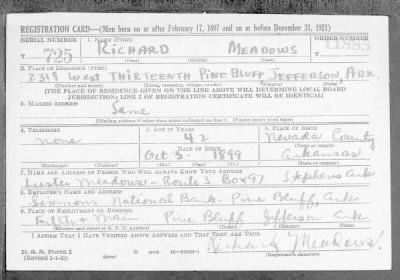 REGISTRATION CARD—(Men born on or after February 17, 1897 and on or before December 31, 1921)
SERIAL NUMBER 1. NAME (Print) ORDER NUMBER
T 725 RICHARD MEADOWS T 11885
(First) (Middle) (Last)
2. PLACE OF RESIDENCE (Print)
2319 West THIRTEENTH PINE BLUFF, JEFFERSON, ARK
(Number and street) (Town, township, village, or city) (County) (State)
[THE PLACE OF RESIDENCE GIVEN ON THE LINE ABOVE WILL DETERMINE LOCAL BOARD
JURISDICTION; LINE 2 OF REGISTRATION CERTIFICATE WILL BE IDENTICAL]
3. MAILING ADDRESS
Same
(Mailing address if other than place indicated on line 2. If same insert word same)
4. TELEPHONE 5. AGE IN YEARS 6. PLACE OF BIRTH
none 42 Nevada County
DATE OF BIRTH (Town or county)
Oct 3. 1899 Arkansas
(Exchange) (Number) (Mo.) (Day) (Yr.) (State or country)
7. NAME AND ADDRESS OF PERSON WHO WILL ALWAYS KNOW YOUR ADDRESS
Meadows - Route 1 Box 97 Stephens Ark
8. EMPLOYER'S NAME AND ADDRESS
Simmons National Bank - Pine Bluff, Ark
9. PLACE OF EMPLOYMENT OR BUSINESS
Fifth & Main Pine Bluff Jefferson Ark
(Number and street or R. F. D. number) (Town) (County) (State)
I AFFIRM THAT I HAVE VERIFIED ABOVE ANSWERS AND THAT THEY ARE TRUE.
D. S. S. Form 1
(Revised 1-1-42) (over) Richard Meadows
(Registrant's signature)